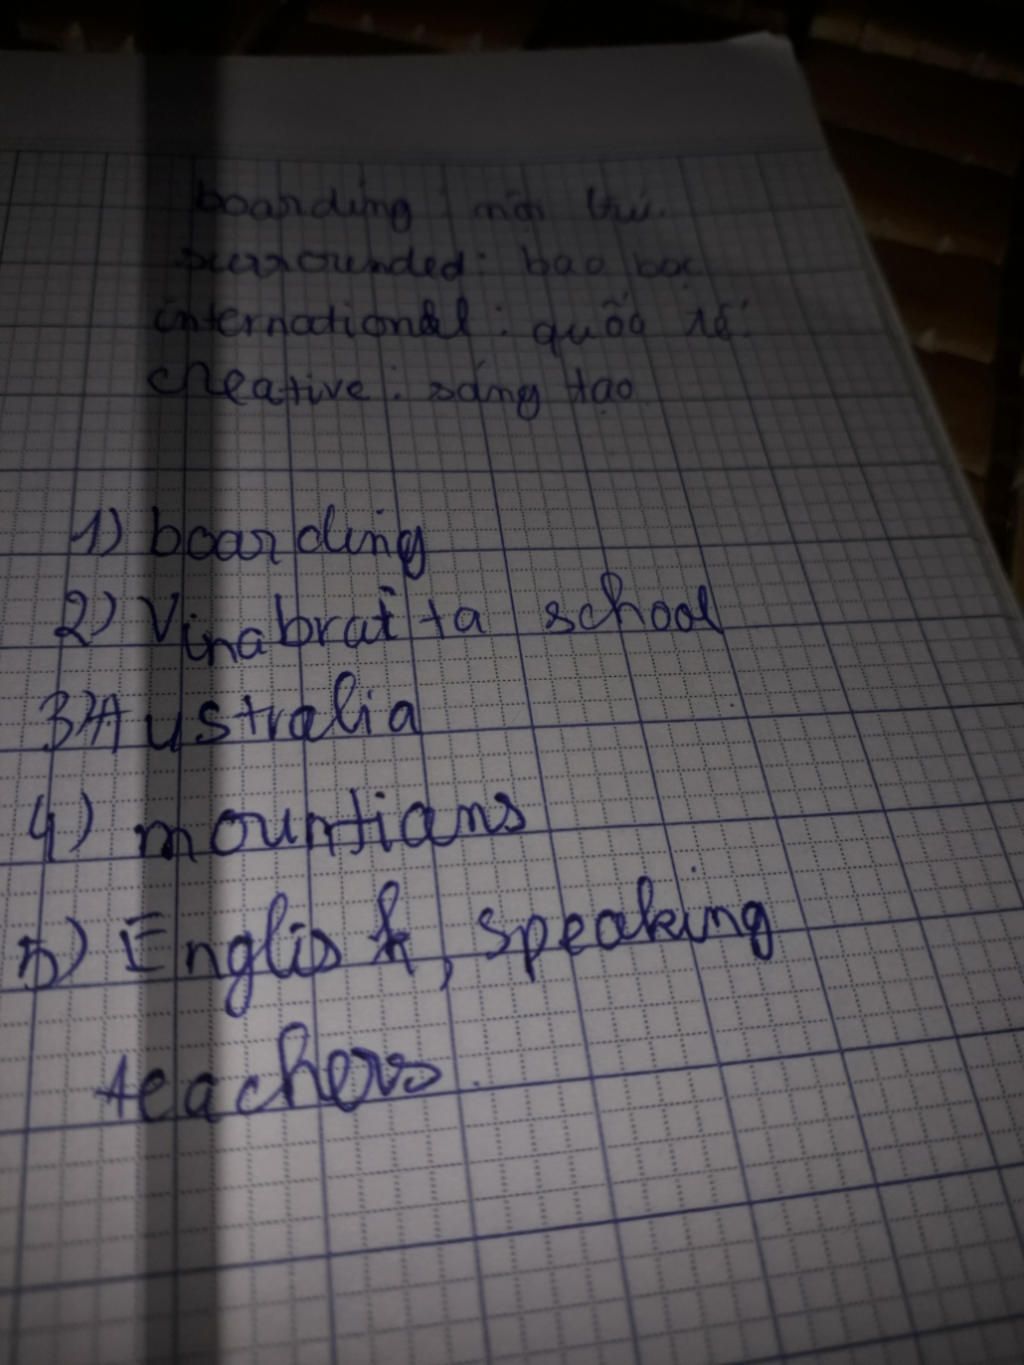 boarding :
surrounded : bao bọc
international : quốc tế
creative : sáng tạo
1) boarding
2) Vinabratta school
3) Australia
4) mountians
5) English, speaking
teachers.